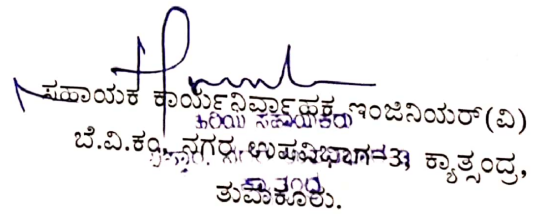 ಸಹಾಯಕ ಕಾರ್ಯನಿರ್ವಾಹಕ ಇಂಜಿನಿಯರ್(ವಿ)
ಹಿರಿಯ ಸಹಾಯಕರು
ಬೆ.ವಿ.ಕಂ, ನಗರ ಉಪವಿಭಾಗ-3, ಕ್ಯಾತ್ಸಂದ್ರ,
ತುಮಕೂರು.